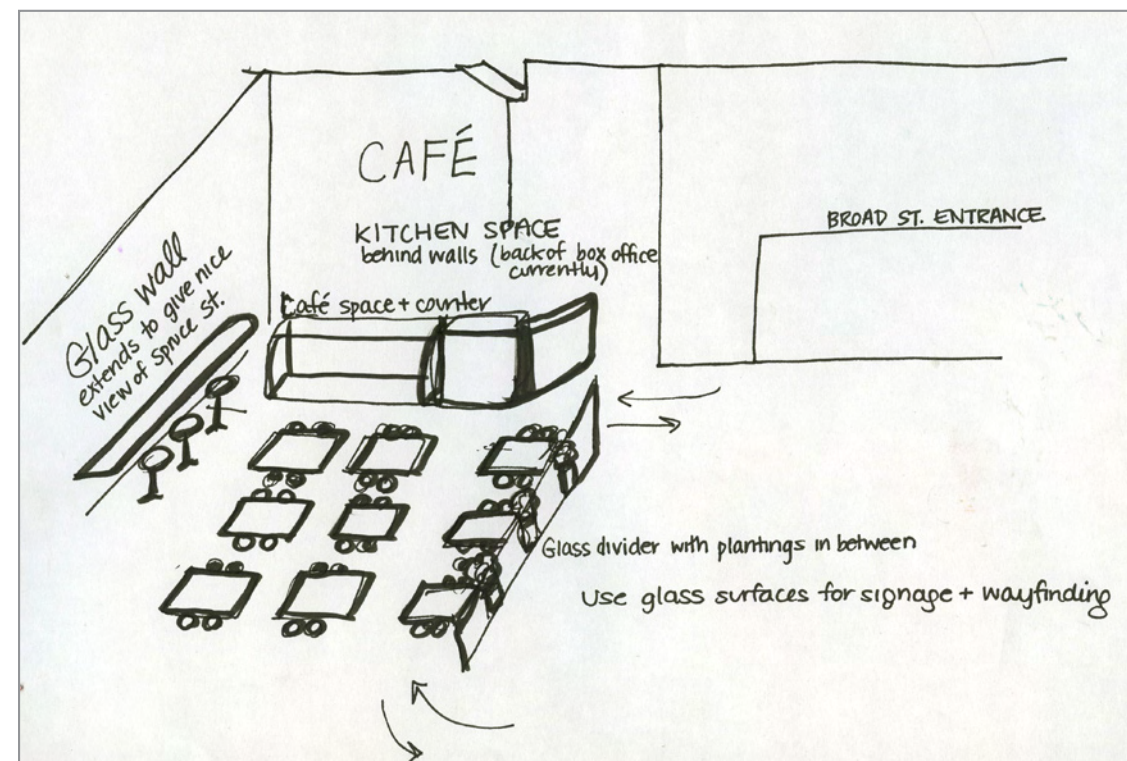 CAFÉ
KITCHEN SPACE
behind walls (back of box office
currently)
BROAD ST. ENTRANCE.
Glass wall
extends to give nice
view of spruce st.
Café space + counter
Glass divider with plantings in between
Use glass surfaces for signage + wayfinding